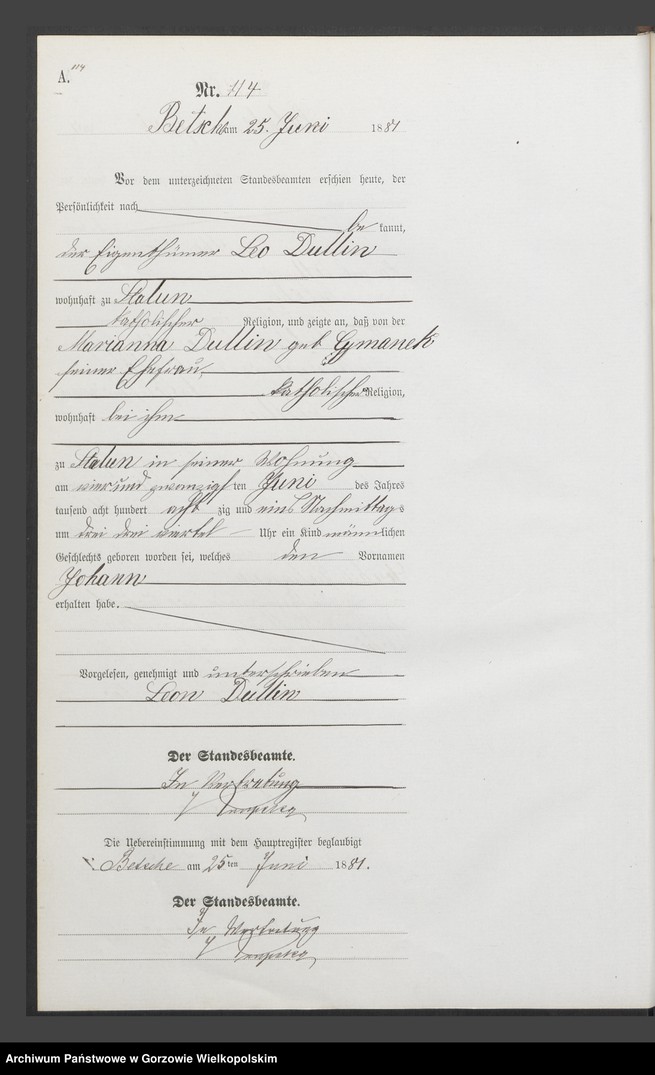 A. 114
Nr. 114
Betsche am 25. Juni 1881
Vor dem unterzeichneten Standesbeamten erschien heute, der
Persönlichkeit nach
be kannt,
der Eigenthümer Leo Dullin
wohnhaft zu Stalun
katholischer Religion, und zeigte an, daß von der
Marianna Dullin geb. Cymanek
seiner Ehefrau,
katholischer Religion,
wohnhaft bei ihm
zu Stalun in seiner Wohnung
am vierund zwanzigsten Juni des Jahres
tausend acht hundert acht zig und eins Nachmittags
um drei drei viertel Uhr ein Kind männlichen
Geschlechts geboren worden sei, welches den Vornamen
Johann
erhalten habe.
Vorgelesen, genehmigt und unterschrieben
Leon Dullin
Der Standesbeamte.
In Vertretung
Die Uebereinstimmung mit dem Hauptregister beglaubigt
Betsche am 25ten Juni 1881.
Der Standesbeamte.
In Vertretung
Archiwum Państwowe w Gorzowie Wielkopolskim